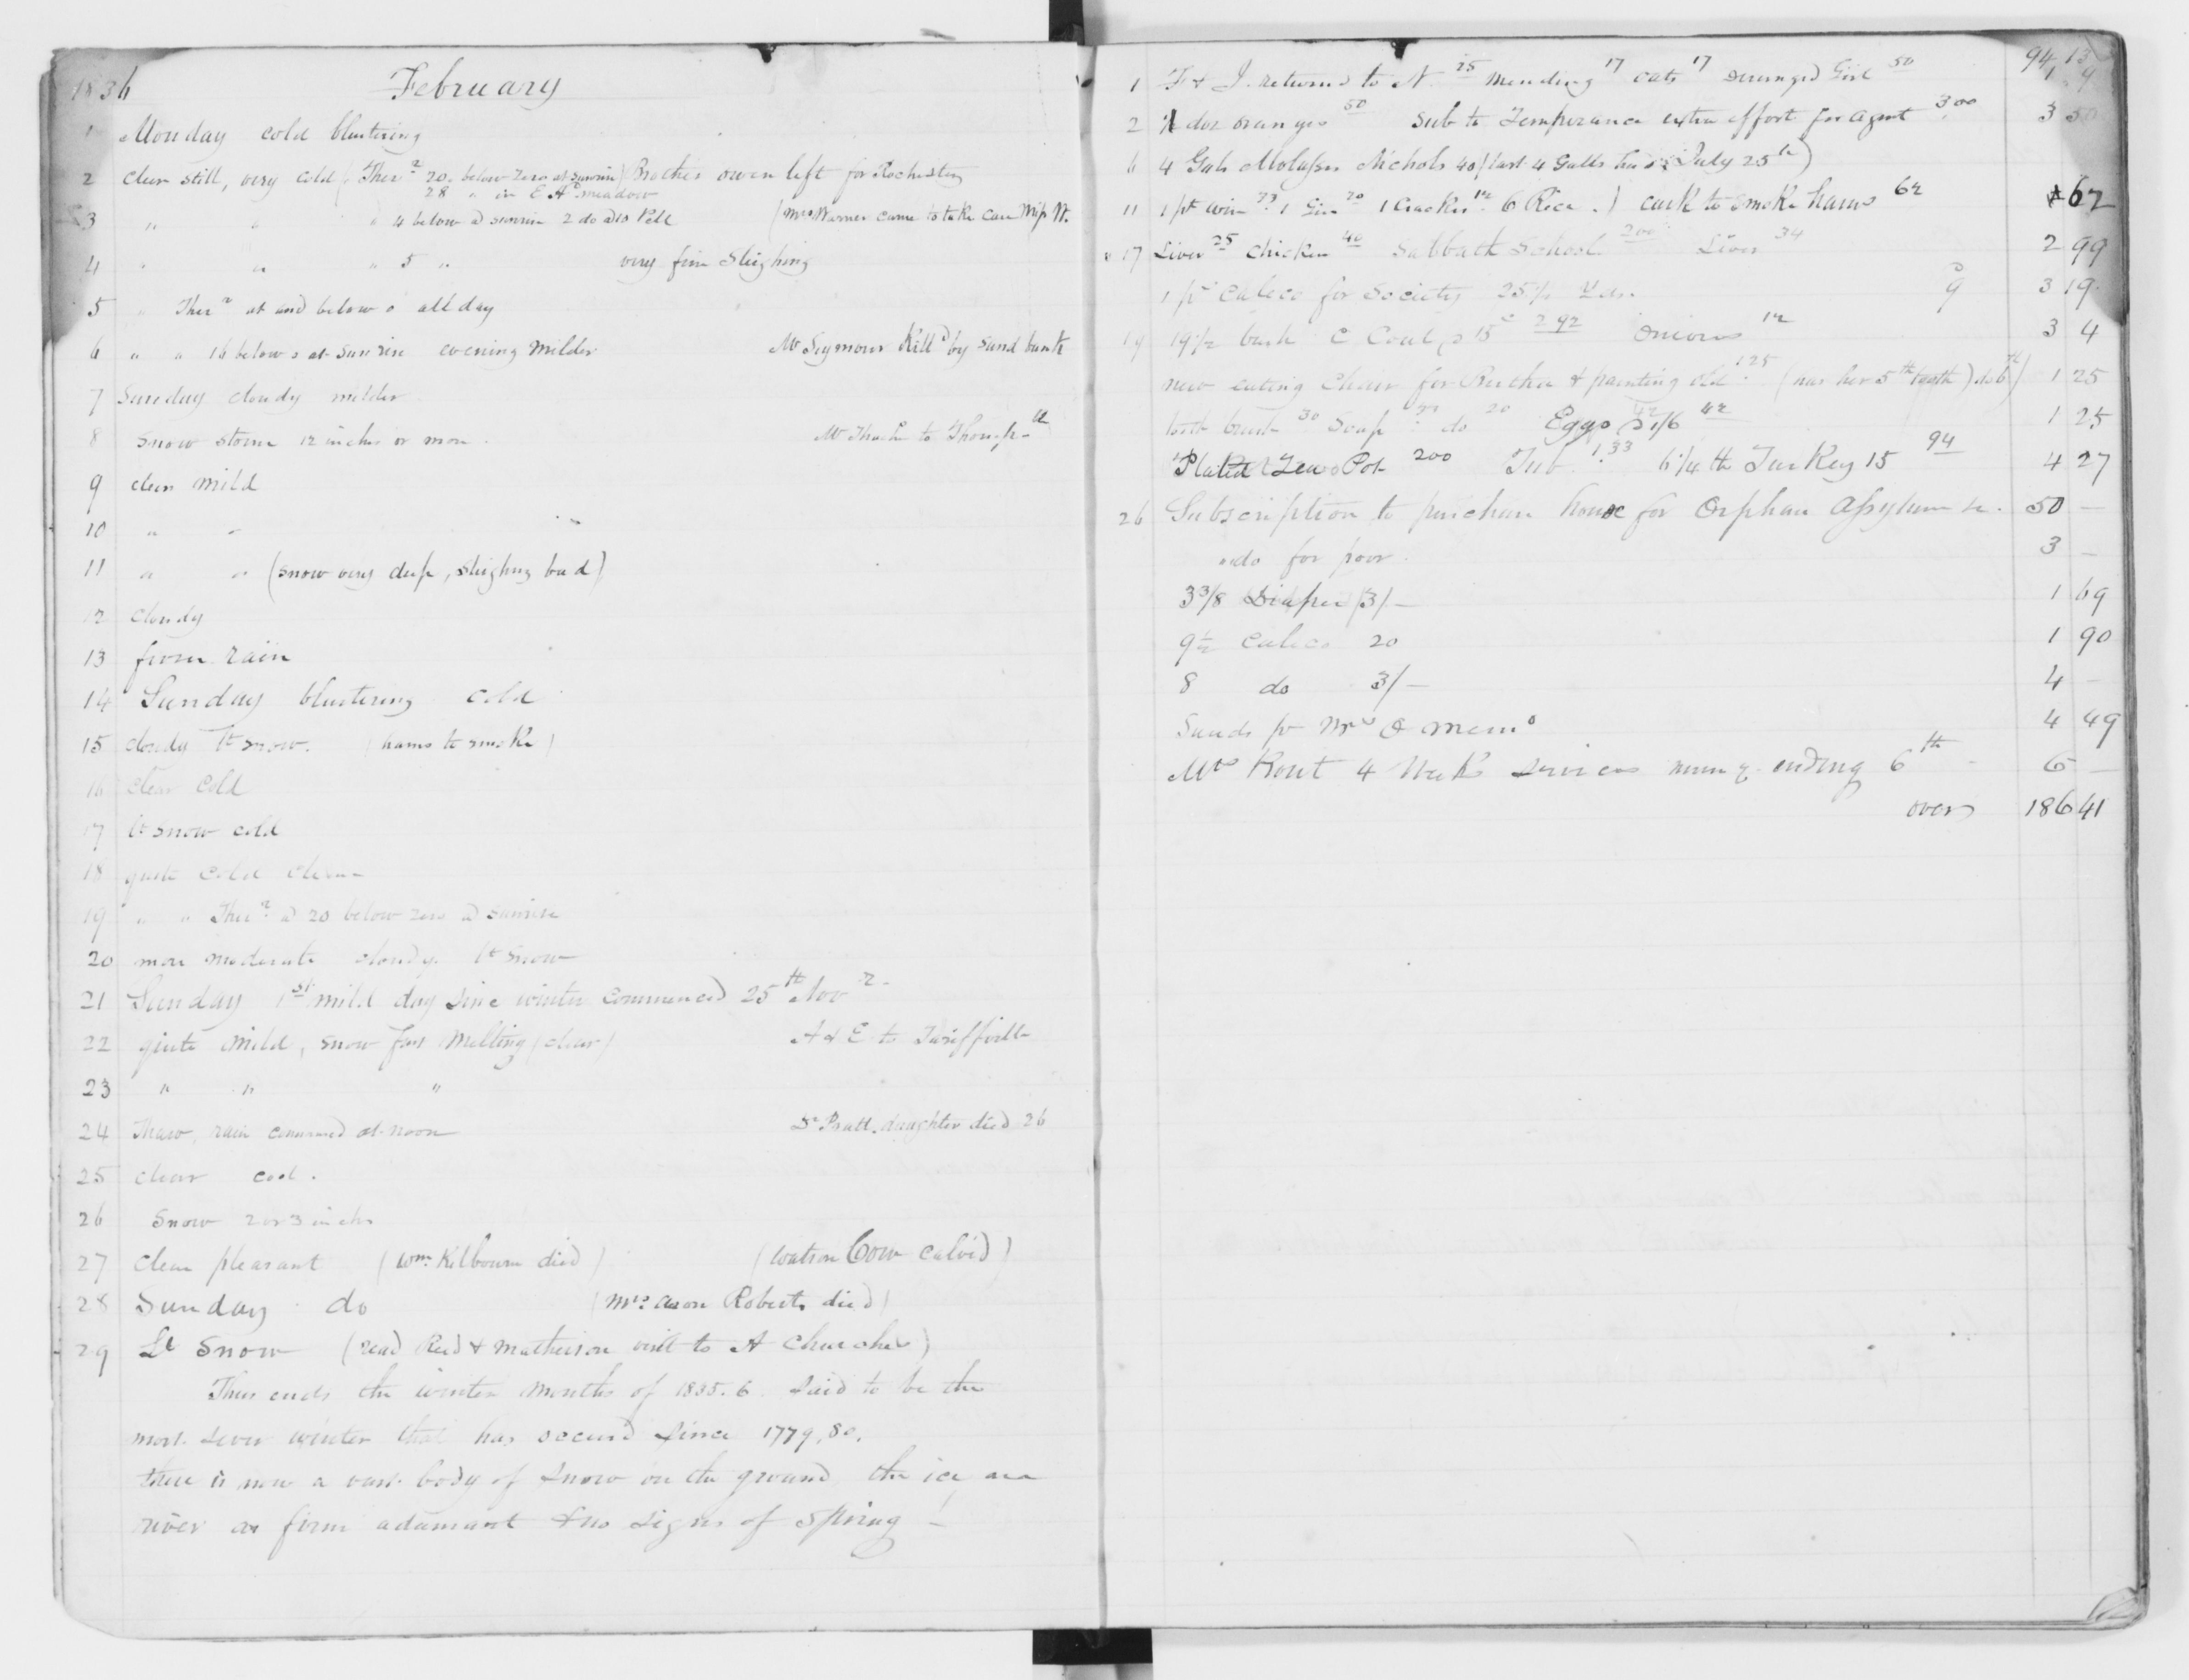 1836 February
1 Monday cold blustering
2 clear still, very cold (Ther 20 below zero at sunrise) Brother Owen left for Rochester
28 " in E H meadow
3 " " " 4 below @ sunrise 2 do @ 10 (Mrs Warner came to take care Miss W.
4 " " " 5 " very fine Sleighing
5 " Ther at and below 0 all day
6 " " 16 below 0 at sunrise evening milder Mr Seymour Kill'd by sand bank
7 Sunday cloudy milder
8 Snow storm 12 inches or more Mr to
9 clear mild
10 " "
11 " " (snow very deep, sleighing bad)
12 cloudy
13 rain
14 Sunday blustering cold
15 cloudy lt snow. (hams to smoke)
16 clear cold
17 lt snow cold
18 quite cold clear
19 " " Ther @ 20 below zero @ sunrise
20 more moderate cloudy. lt snow
21 Sunday 1st mild day since winter commenced 25th Novr
22 quite mild, snow fast melting (clear) A & E to Tariffville
23 " " "
24 Thaw, rain commenced at noon Dr Pratt daughter died 26
25 clear cool.
26 Snow 2 or 3 inches
27 clear pleasant (Wm Kilbourn died) (Watson Cow calv'd)
28 Sunday do (Mrs Roberts died)
29 Lt Snow (read Reed & Matheison visit to A Churches)
Thus ends the winter months of 1835.6 said to be the
most sever winter that has since 1779,80.
there is now a vast body of snow on the ground the ice
river as firm adamant & no signs of spring –
94 13
1 F & J. returns to N. 25 mending 17 cats 17 Girl 50 1 9
2 doz oranges 50 sub to Temperance extra effort for agent 3.00 3 50
6 4 Gals Molasses Nichols 40 (last 4 Galls July 25th)
11 1 pt 1 Gin 20 1 Cracker 12 6 Rice.) cask to smoke hams 62 62
17 Liver 25 Chicken 40 Sabbath School 200 Liver 34 2 99
1 ps Calico for Society 25 1/2 Yds. 3 19
19 19 1/2 bush C Coal @ 15c 2 92 Onions 12 3 4
new eating chair for & painting old 1.25 (has her 5th tooth) do 6th) 1 25
tooth brush 30 Soap do 20 Eggs 1/6 42 1 25
Plated Tea Pot 200 Tub 1.33 6 1/4 lb Turkey 15 94 4 27
26 Subscription to purchase house for Orphan Assylum &c. 50 –
do for poor 3 –
3 3/8 Diaper 3/– 1 69
9 1/2 Calico 20 1 90
8 do 3/– 4 –
Sunds pr Mrs O Memo 4 49
Mrs Rout 4 Weeks services ending 6th 6 –
over 186 41